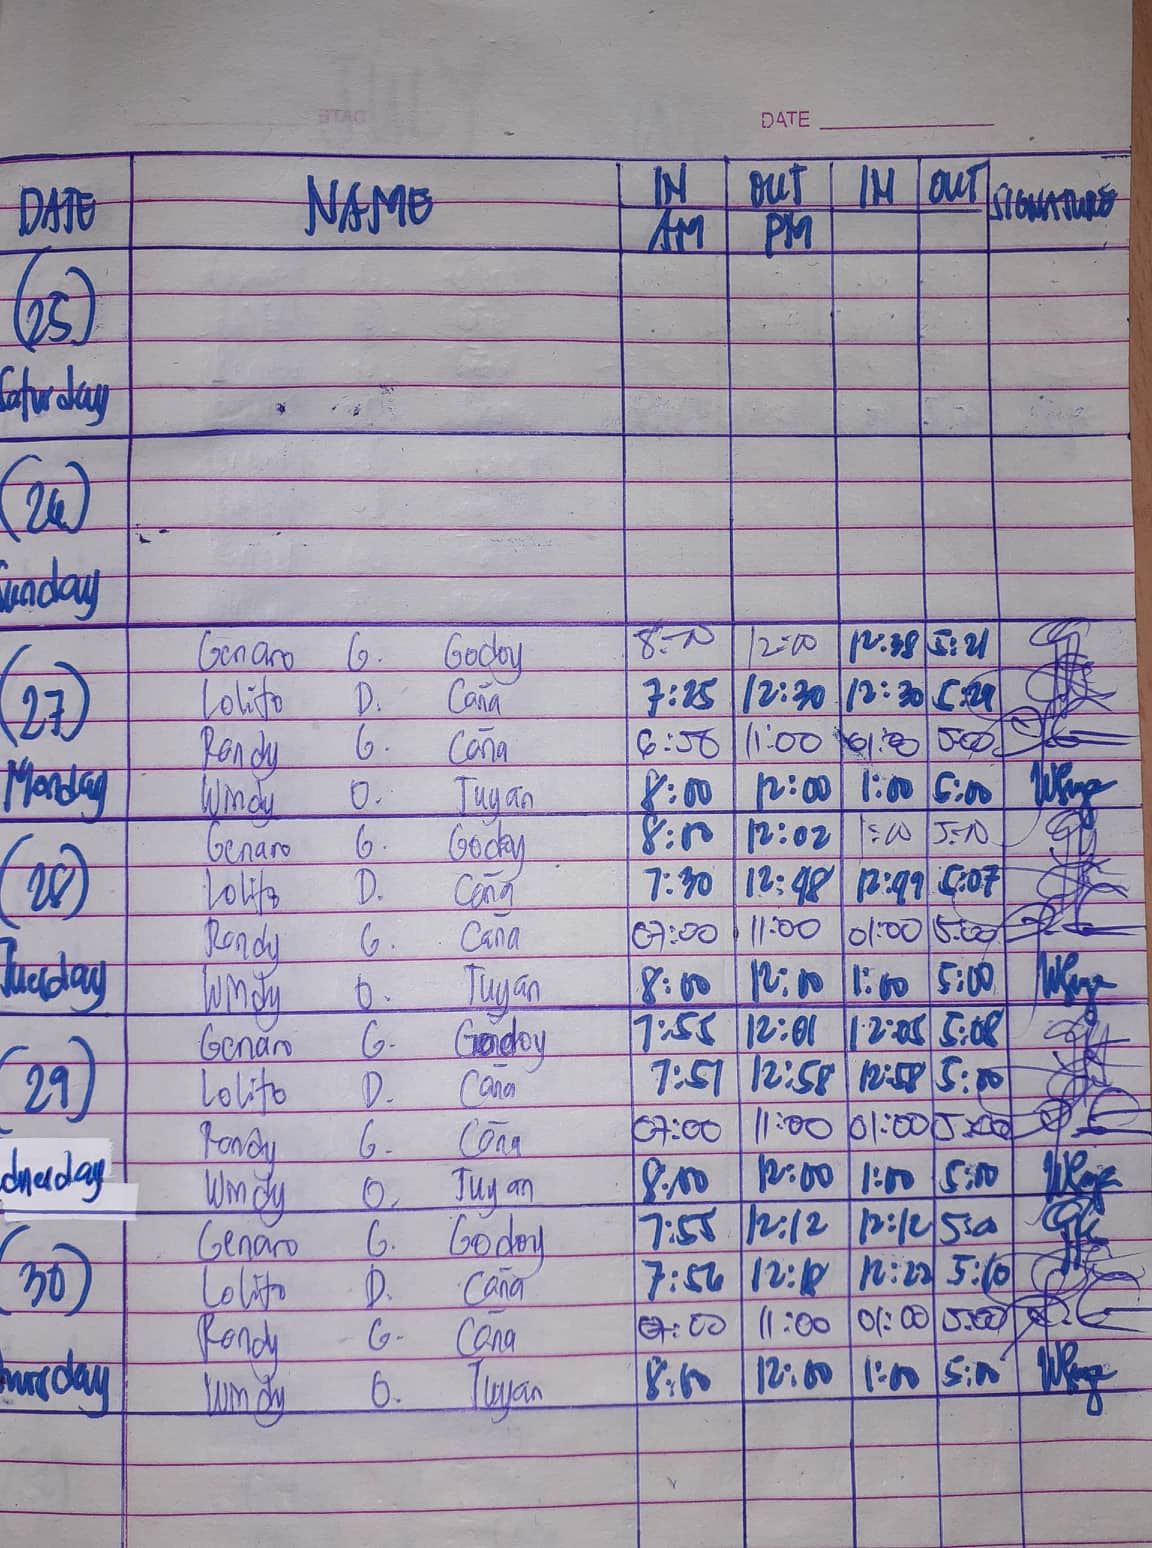 DATE
DATE NAME IN OUT IN OUT SIGNATURE
AM PM
(25)
Saturday
(26)
Sunday
(27)
Genaro G. Godoy 8:00 12:00 12:38 5:21
Lolito D. Caña 7:25 12:30 12:30 5:21
Randy G. Caña 6:58 11:00 01:00 5:00
Monday Windy O. Tuyan 8:00 12:00 1:00 5:00
(28)
Genaro G. Godoy 8:00 12:02 1:00 5:00
Lolito D. Caña 7:30 12:48 12:49 5:07
Randy G. Caña 07:00 11:00 01:00 5:00
Tuesday Windy O. Tuyan 8:00 12:00 1:00 5:00
(29)
Genaro G. Godoy 7:55 12:01 12:05 5:08
Lolito D. Caña 7:57 12:58 12:58 5:00
Randy G. Caña 07:00 11:00 01:00 5:00
dnesday Windy O. Tuyan 8:00 12:00 1:00 5:00
(30)
Genaro G. Godoy 7:55 12:12 12:12 5:0
Lolito D. Caña 7:56 12:18 12:22 5:10
Randy G. Caña 07:00 11:00 01:00 5:00
Thursday Windy O. Tuyan 8:00 12:00 1:00 5:00